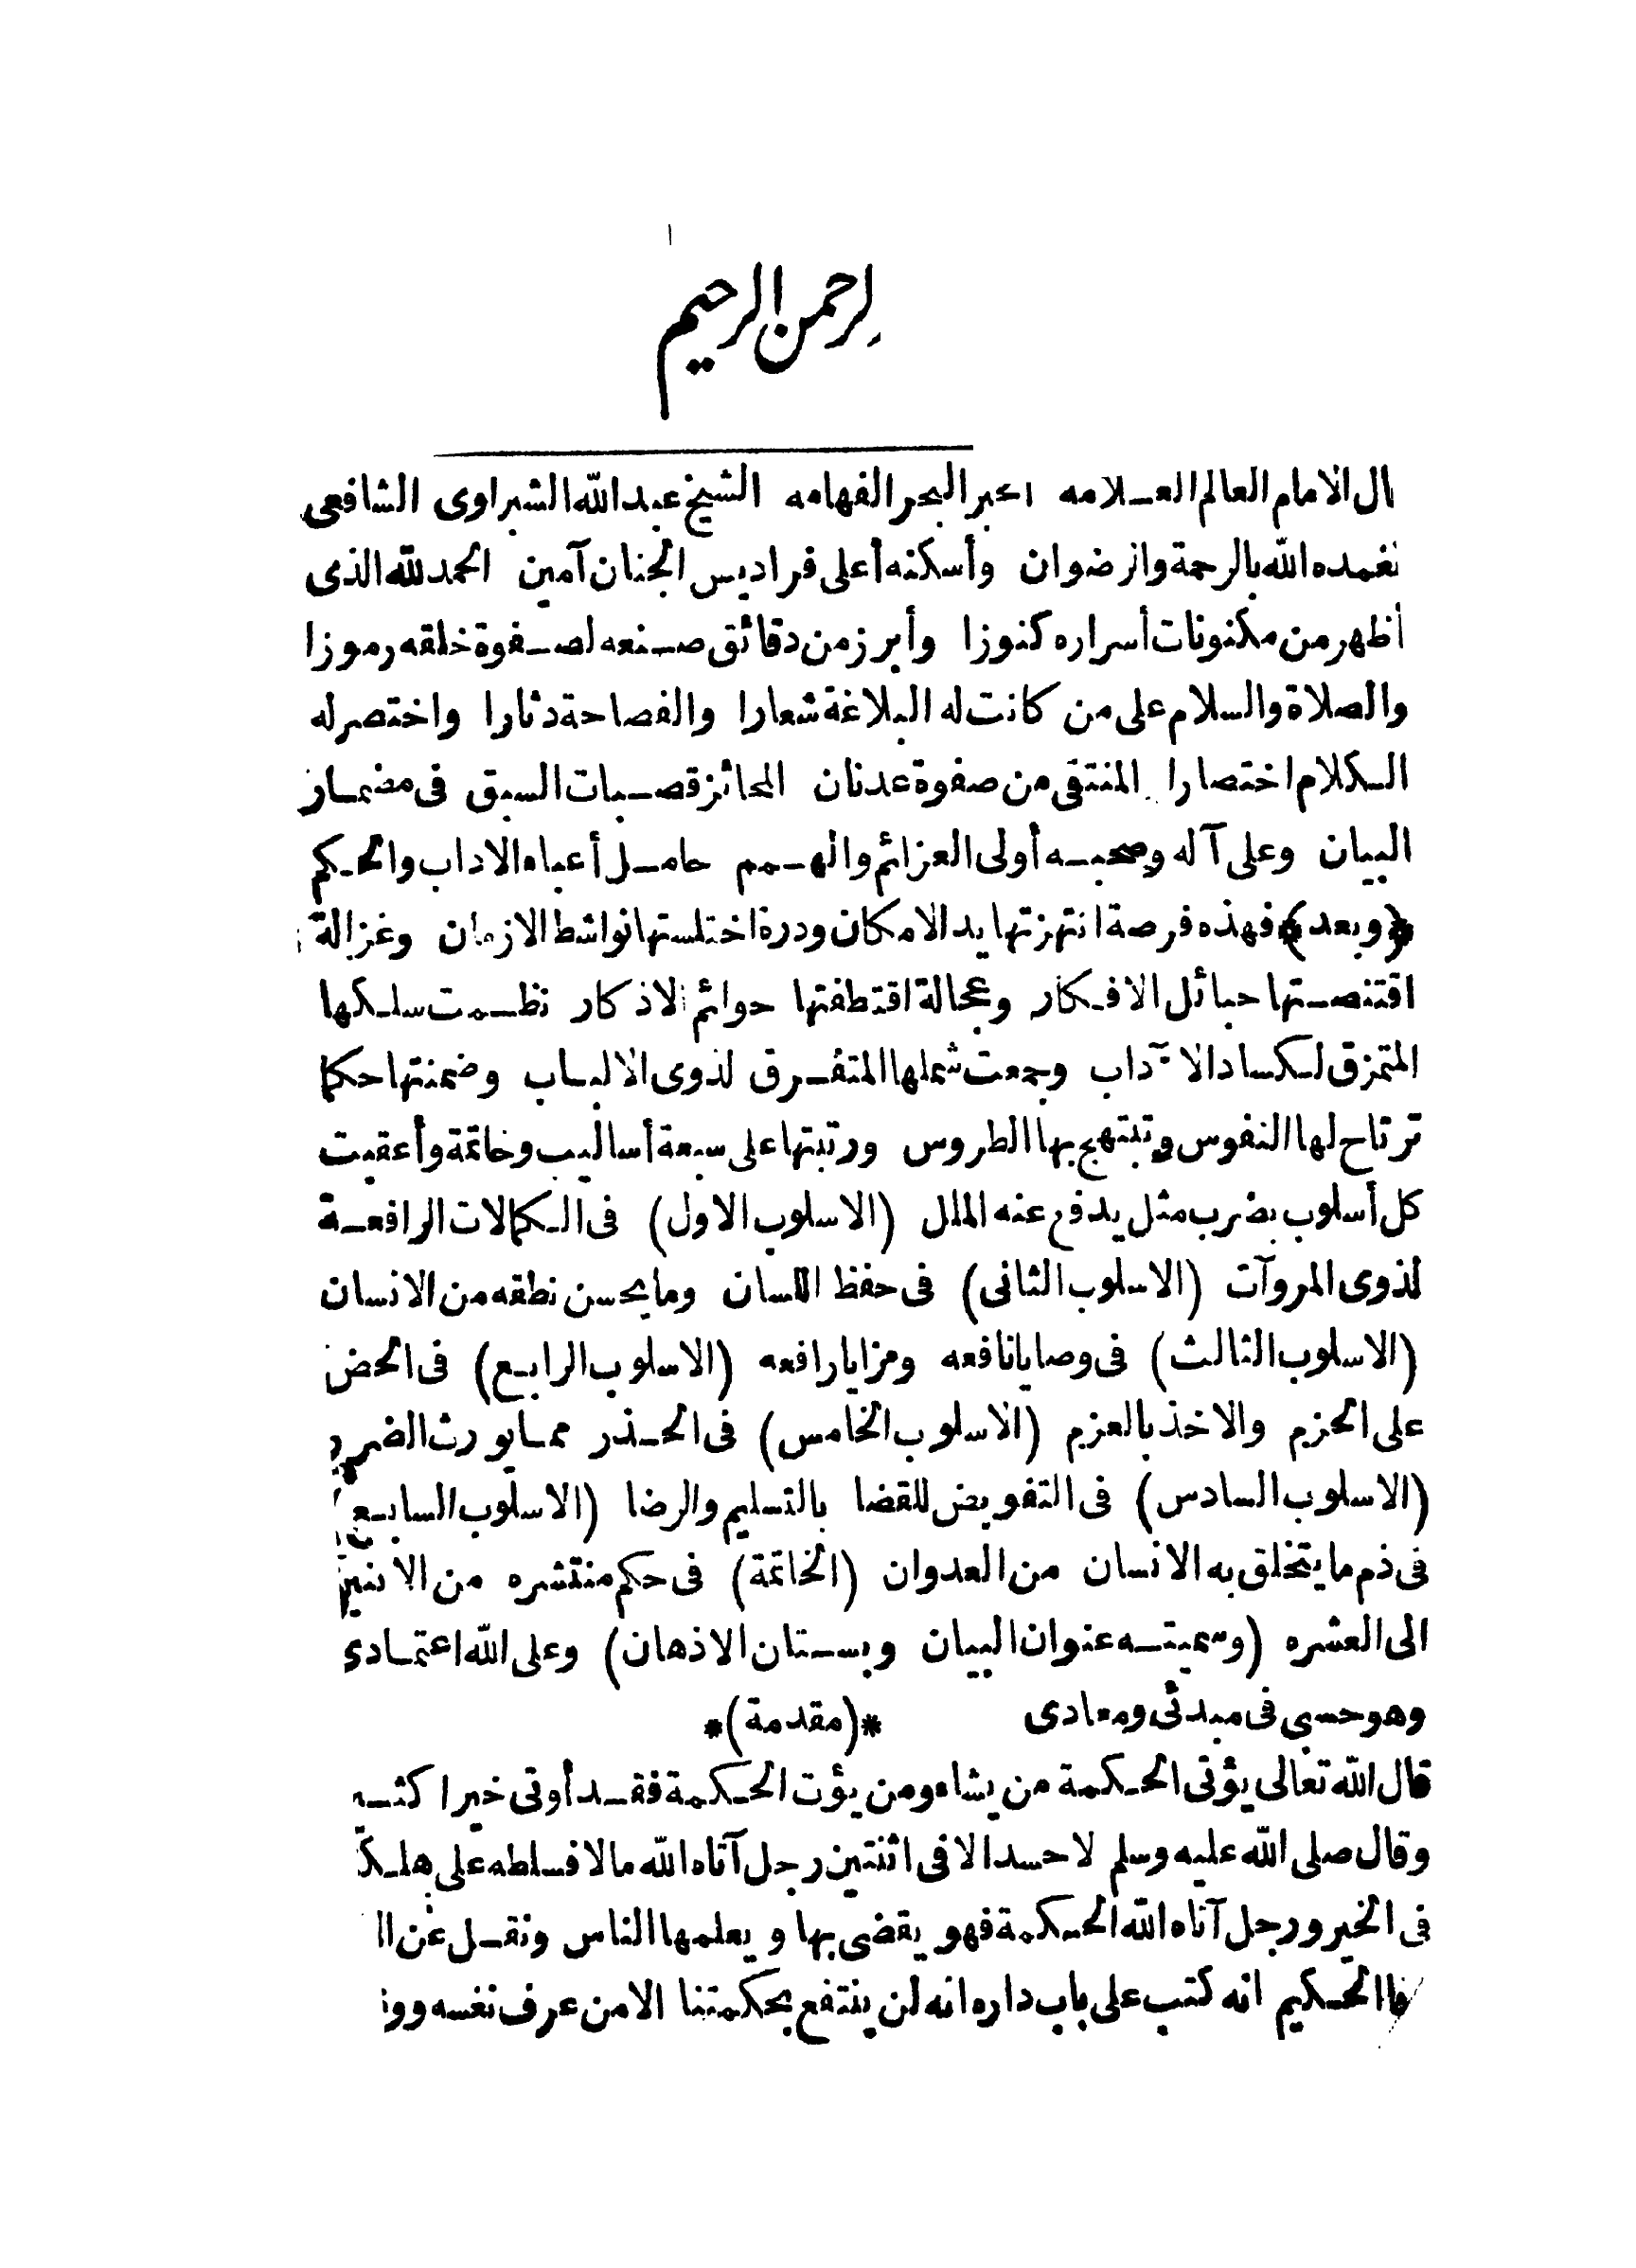 الرحمن الرحيم
ال الامام العالم العلامه الحبر البحر الفهامه الشيخ عبد الله الشبراوى الشافعى
تغمده الله بالرحمة والرضوان وأسكنه أعلى فراديس الجنان آمين الحمد لله الذى
أظهر من مكنونات أسراره كنوزا وأبرز من دقائق صنعه لصفوة خلقه رموزا
والصلاة والسلام على من كانت له البلاغة شعارا والفصاحة دثارا واختصر له
الكلام اختصارا المنتقى من صفوة عدنان الحائز قصبات السبق فى مضمار
البيان وعلى آله وصحبه أولى العزائم والهمم حامل أعباء الاداب والحكم
﴿وبعد﴾ فهذه فرصة انتهزتها يد الامكان ودرة اختلستها نواشط الازمان وغزالة
اقتنصتها حبائل الافكار وعجالة اقتطفتها حوائم الاذكار نظمت سلكها
المتمزق لكساد الآداب وجمعت شملها المتفرق لذوى الالباب وضمنتها حكما
ترتاح لها النفوس وتبتهج بها الطروس ورتبتها على سبعة أساليب وخاتمة وأعقبت
كل أسلوب بضرب مثل يدفع عنه الملل (الاسلوب الاول) فى الكمالات الرافعة
لذوى المروآت (الاسلوب الثانى) فى حفظ اللسان وما يحسن نطقه من الانسان
(الاسلوب الثالث) فى وصايا نافعه ومزايا رافعه (الاسلوب الرابع) فى الحض
على الحزم والاخذ بالعزم (الاسلوب الخامس) فى الحذر مما يورث الضرر
(الاسلوب السادس) فى التفويض للقضا بالتسليم والرضا (الاسلوب السابع)
فى ذم ما يتخلق به الانسان من العدوان (الخاتمة) فى حكم منتشره من الاثنين
الى العشره (وسميته عنوان البيان وبستان الاذهان) وعلى الله اعتمادى
وهو حسبى فى مبدئى ومعادى *(مقدمة)*
قال الله تعالى يؤتى الحكمة من يشاء ومن يؤت الحكمة فقد أوتى خيرا
وقال صلى الله عليه وسلم لا حسد الا فى اثنتين رجل آتاه الله مالا فسلطه على
فى الخير ورجل آتاه الله الحكمة فهو يقضى بها ويعلمها الناس ونقل عن
الحكيم انه كتب على باب داره انه لن ينتفع بحكمتنا الا من عرف نفسه